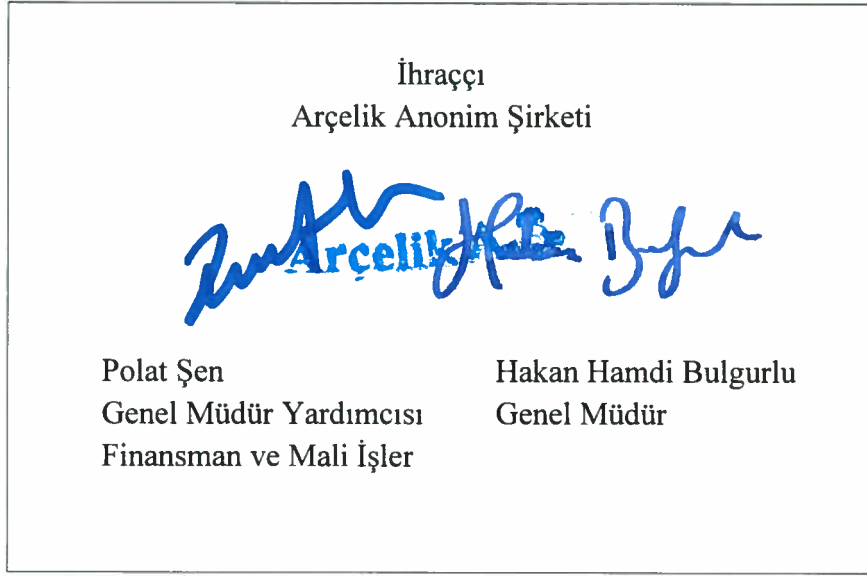 İhraççı
Arçelik Anonim Şirketi
Arçelik
Polat Şen
Genel Müdür Yardımcısı
Finansman ve Mali İşler
Hakan Hamdi Bulgurlu
Genel Müdür